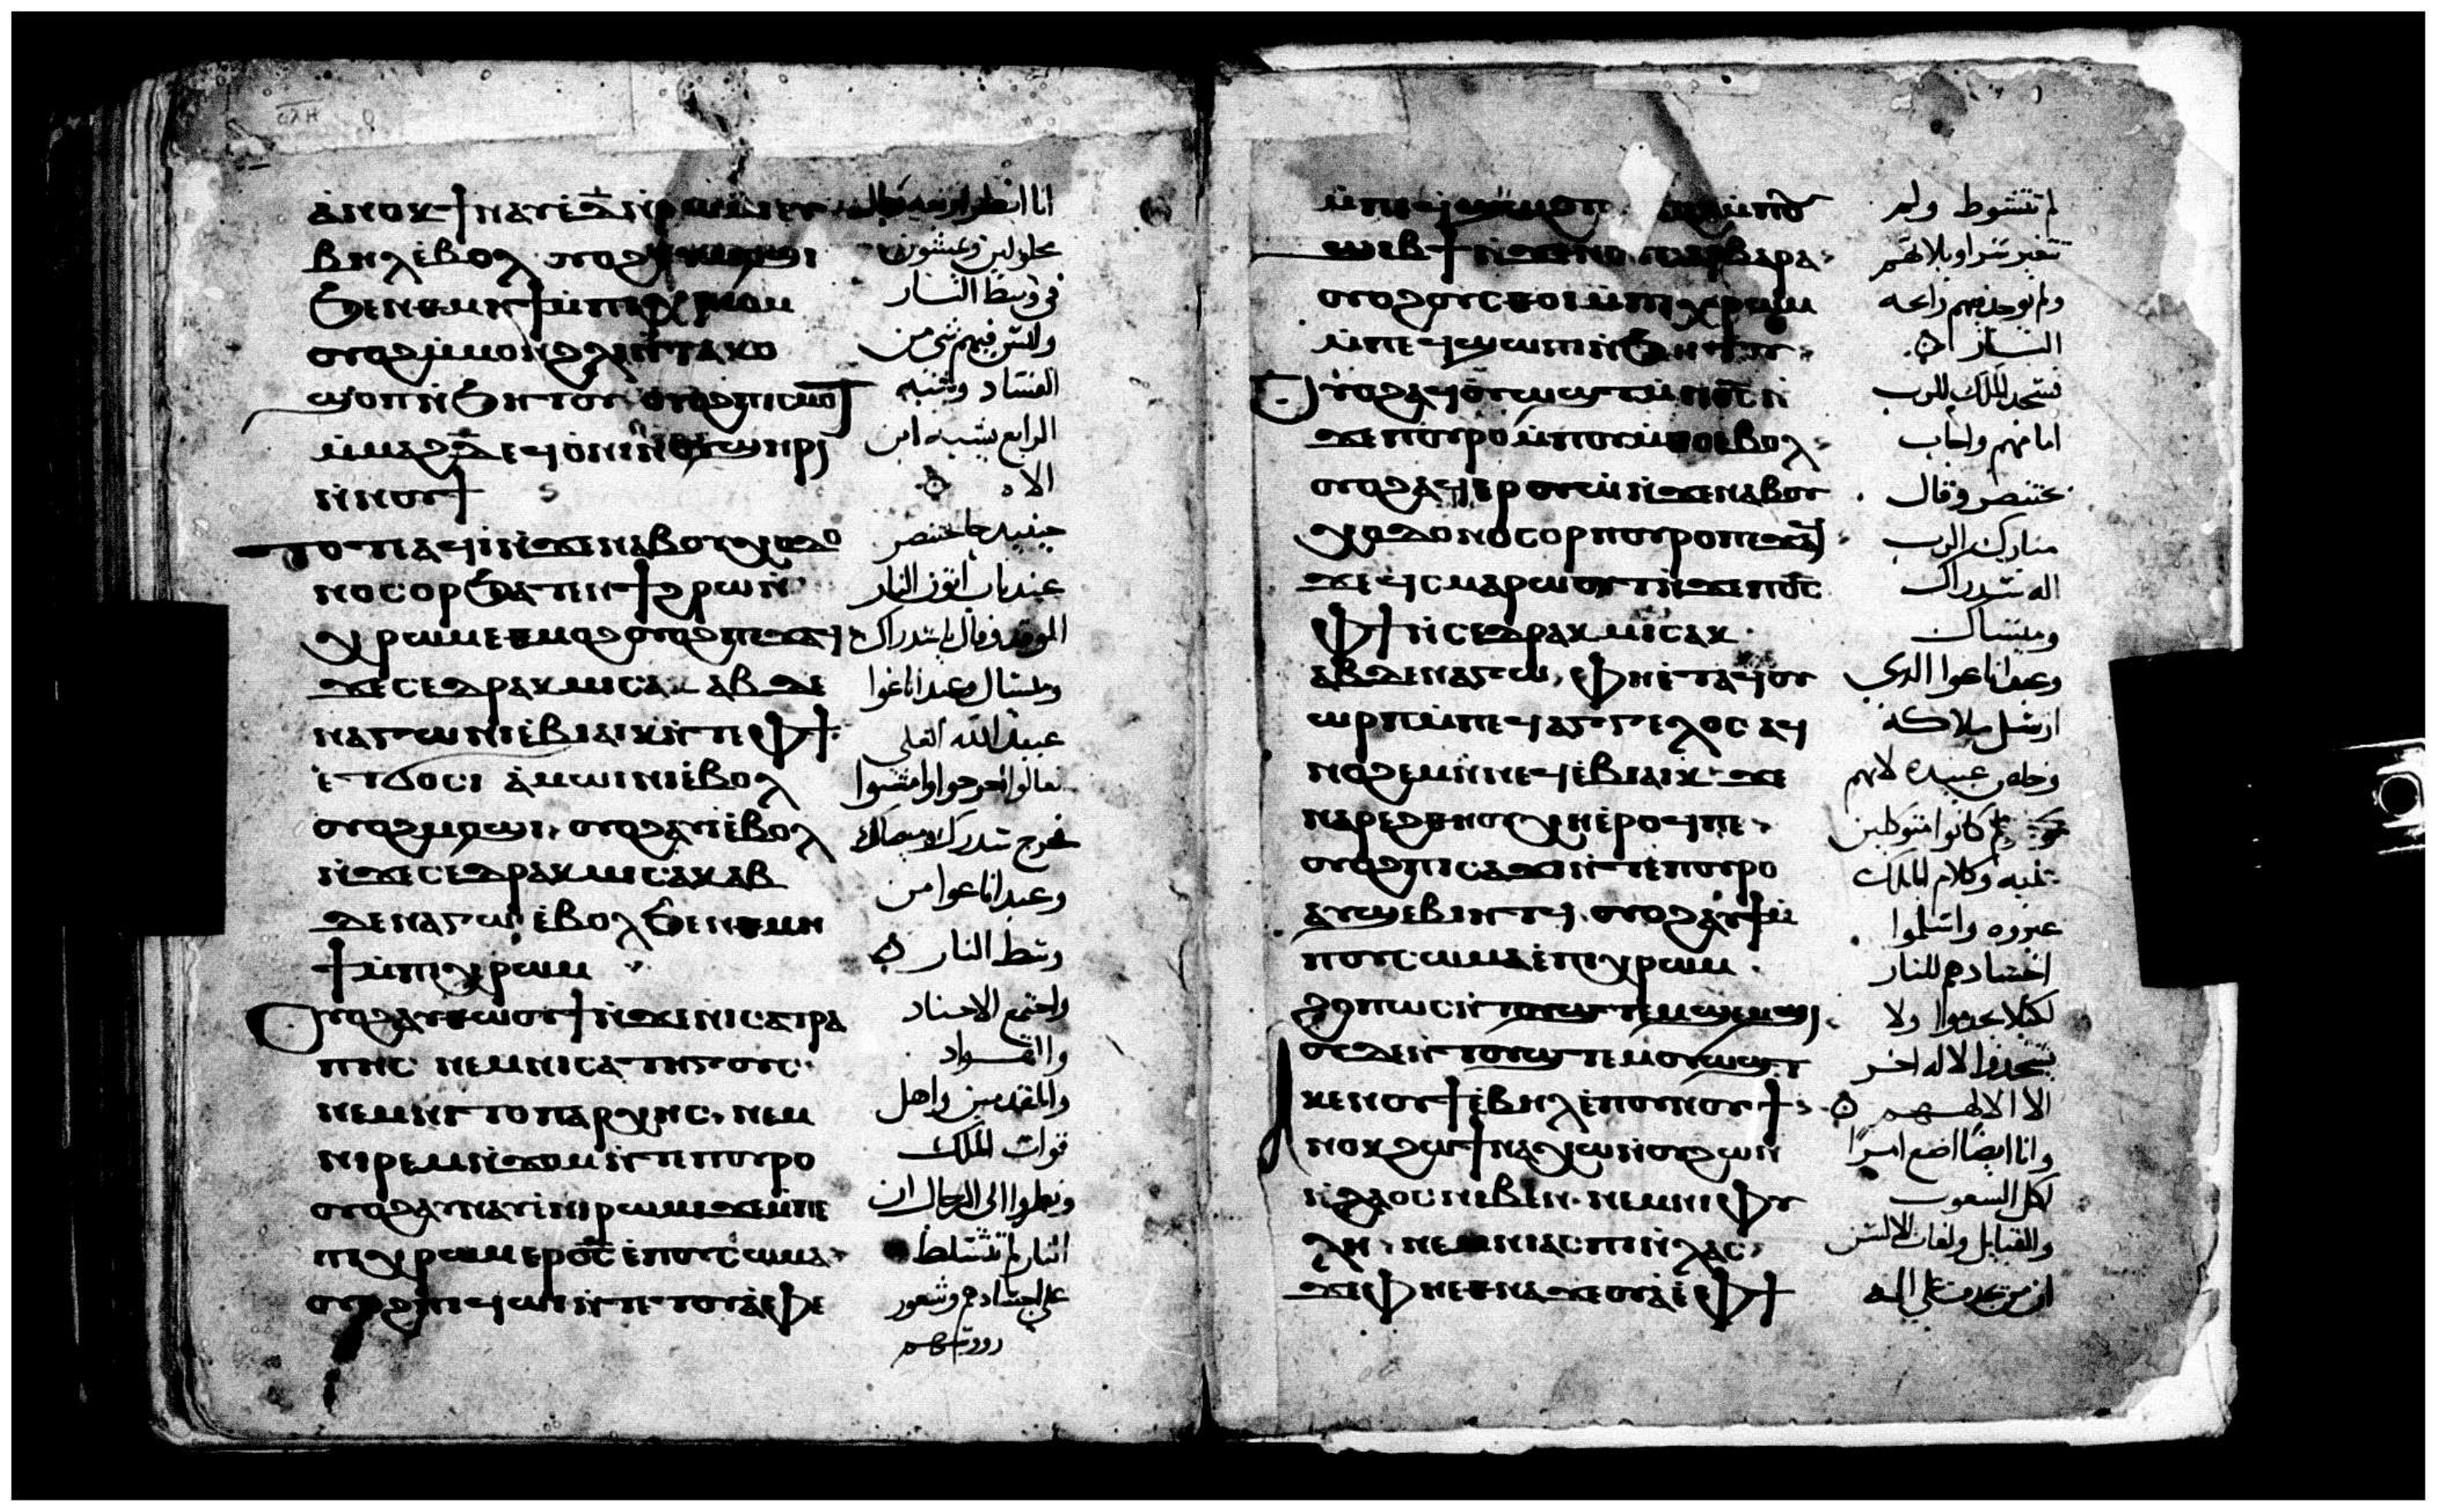 ⲁⲛⲟⲕ ϯⲛⲁⲩ ⲉⲇ̅ ⲛⲣⲱⲙⲓ ⲉⲩ
ⲃⲏⲗ ⲉⲃⲟⲗ ⲟⲩⲟϩ ⲉⲩⲙⲟϣⲓ
ϧⲉⲛ ⲑⲙⲏϯ ⲙⲡⲓⲭⲣⲱⲙ
ⲟⲩⲟϩ ⲙⲙⲟⲛ ϩⲗⲓ ⲛⲧⲁⲕⲟ
ϣⲟⲡ ⲛϧⲏⲧⲟⲩ ⲟⲩⲟϩ ⲡⲓⲥⲙⲟⲧ
ⲙⲙⲁϩⲇ̅ ⲉϥⲟⲛⲓ ⲛⲟⲩϣⲏⲣⲓ
ⲛⲛⲟⲩϯ
ⲧⲟⲧⲉ ⲁϥⲓ ⲛϫⲉ ⲛⲁⲃⲟⲩⲭⲟⲇⲟ
ⲛⲟⲥⲟⲣ ϧⲁⲧⲉⲛ ϯϩⲣⲱ ⲛ
ⲭⲣⲱⲙ ⲉⲑⲙⲟϩ ⲟⲩⲟϩ ⲡⲉϫⲁϥ
ϫⲉ ⲥⲉⲇⲣⲁⲕ ⲙⲓⲥⲁⲕ ⲁⲃⲇⲉ
ⲛⲁⲅⲱ ⲛⲓⲉⲃⲓⲁⲓⲕ ⲛⲧⲉ ⲫϯ
ⲉⲧϭⲟⲥⲓ ⲁⲙⲱⲓⲛⲓ ⲉⲃⲟⲗ
ⲟⲩⲟϩ ⲙⲟϣⲓ ⲟⲩⲟϩ ⲁⲩⲓ ⲉⲃⲟⲗ
ⲛϫⲉ ⲥⲉⲇⲣⲁⲕ ⲙⲓⲥⲁⲕ ⲁⲃ
ⲇⲉⲛⲁⲅⲱ ⲉⲃⲟⲗ ϧⲉⲛ ⲑⲙⲏ
ϯ ⲙⲡⲓⲭⲣⲱⲙ
ⲟⲩⲟϩ ⲁⲩⲑⲱⲟⲩϯ ⲛϫⲉ ⲛⲓⲥⲁⲧⲣⲁ
ⲡⲏⲥ ⲛⲉⲙ ⲛⲓⲥⲁⲧⲏⲅⲟⲩⲥ
ⲛⲉⲙ ⲛⲓⲧⲟⲡⲁⲣⲭⲏⲥ ⲛⲉⲙ
ⲛⲓⲣⲉⲙⲛϫⲟⲙ ⲛⲧⲉ ⲡⲟⲩⲣⲟ
ⲟⲩⲟϩ ⲁⲩⲛⲁⲩ ⲉⲛⲓⲣⲱⲙⲓ ϫⲉ ⲙⲡⲉ
ⲡⲓⲭⲣⲱⲙ ⲉⲣ ⲟ̅ⲥ̅ ⲉⲡⲟⲩⲥⲱⲙⲁ
ⲟⲩⲟϩ ⲡⲓϥⲱⲓ ⲛⲧⲉ ⲧⲟⲩⲁⲫⲉ
محلولين وعشون
في وسط النار
وليس فيهم شي من
الفساد وشبه
الرابع يشبه ابن
الاه
حينيد جا بختنصر
عند باب اتون النار
الموقد وقال يا سدراك
وميساك وعبداناغوا
عبيد الله العلي
تعالوا اخرجوا وامشوا
فخرج سدراك وميساك
وعبداناغوا من
وسط النار
واجتمع الاجناد
والقواد
والمقدمين واهل
قوات الملك
ونظروا الي الرجال ان
النار لم تتسلط
علي اجسادهم وشعور
روؤسهم
ⲱⲉⲃϯ ⲛϫⲉ ⲛⲟⲩⲥⲁⲣⲃⲁⲣⲁ
ⲟⲩⲟϩ ⲟⲩⲥⲑⲟⲓ ⲙⲡⲓⲭⲣⲱⲙ
ⲙⲡⲉϥϣⲱⲡⲓ ⲛϧⲏⲧⲟⲩ
ⲟⲩⲟϩ ⲁϥⲟⲩⲱϣⲧ ⲙⲡ̅ⲟ̅ⲥ̅ ⲛ
ϫⲉ ⲡⲟⲩⲣⲟ ⲙⲡⲟⲩⲙⲑⲟ ⲉⲃⲟⲗ
ⲟⲩⲟϩ ⲁϥⲉⲣⲟⲩⲱ ⲛϫⲉ ⲛⲁⲃⲟⲩ
ⲭⲟⲇⲟⲛⲟⲥⲟⲣ ⲡⲟⲩⲣⲟ ⲡⲉϫⲁϥ
ϫⲉ ϥⲥⲙⲁⲣⲱⲟⲩⲧ ⲛϫⲉ ⲡ̅ⲟ̅ⲥ̅
ⲫϯ ⲛⲥⲉⲇⲣⲁⲕ ⲙⲓⲥⲁⲕ
ⲁⲃⲇⲉⲛⲁⲅⲱ ⲫⲏ ⲉⲧⲁϥⲟⲩ
ⲱⲣⲡ ⲙⲡⲉϥⲁⲅⲅⲉⲗⲟⲥ ⲁϥ
ⲛⲟϩⲉⲙ ⲛⲛⲉϥⲉⲃⲓⲁⲓⲕ ϫⲉ
ⲛⲁⲣⲉ ϩⲑⲏⲟⲩ ⲭⲏ ⲉⲣⲟϥ ⲡⲉ
ⲟⲩⲟϩ ⲡⲓⲥⲁϫⲓ ⲛⲧⲉ ⲡⲟⲩⲣⲟ
ⲁⲩϣⲉⲃⲓⲏⲧϥ ⲟⲩⲟϩ ⲁⲩϯ ⲙ
ⲡⲟⲩⲥⲱⲙⲁ ⲉⲡⲓⲭⲣⲱⲙ
ϩⲟⲡⲱⲥ ⲛⲧⲟⲩϣⲧⲉⲙϣⲉⲙϣⲓ
ⲟⲩⲇⲉ ⲛⲧⲟⲩϣⲧⲉⲙⲟⲩⲱϣⲧ
ⲕⲉⲛⲟⲩϯ ⲉⲃⲏⲗ ⲉⲡⲟⲩⲛⲟⲩϯ
ⲁⲛⲟⲕ ϩⲱ ϯⲛⲁⲭⲱ ⲛⲟⲩϩⲱⲛ
ⲛⲗⲁⲟⲥ ⲛⲓⲃⲉⲛ ⲛⲉⲙ ⲛⲓⲫⲩ
ⲗⲏ ⲛⲉⲙ ⲛⲓⲁⲥⲡⲓ ⲛⲗⲁⲥ
ϫⲉ ⲫⲏ ⲉⲑⲛⲁϫⲉⲟⲩⲁ ⲉⲫϯ
لم تشوط ولم
تتغير سراويلاتهم
ولم توجد فيهم رايحه
النار
فسجد الملك للرب
امامهم واجاب
بختنصر وقال
مبارك الرب
اله سدراك
وميساك
وعبداناغوا الدي
ارسل ملاكه
وخلص عبيده لانهم
كانوا متوكلين
عليه وكلام الملك
غيروه واسلموا
اجسادهم للنار
لكيلا يخدموا ولا
يسجدوا لاله اخر
الا الاههم
وانا ايضا اضع امرا
لكل الشعوب
والقبايل ولغات الالسن